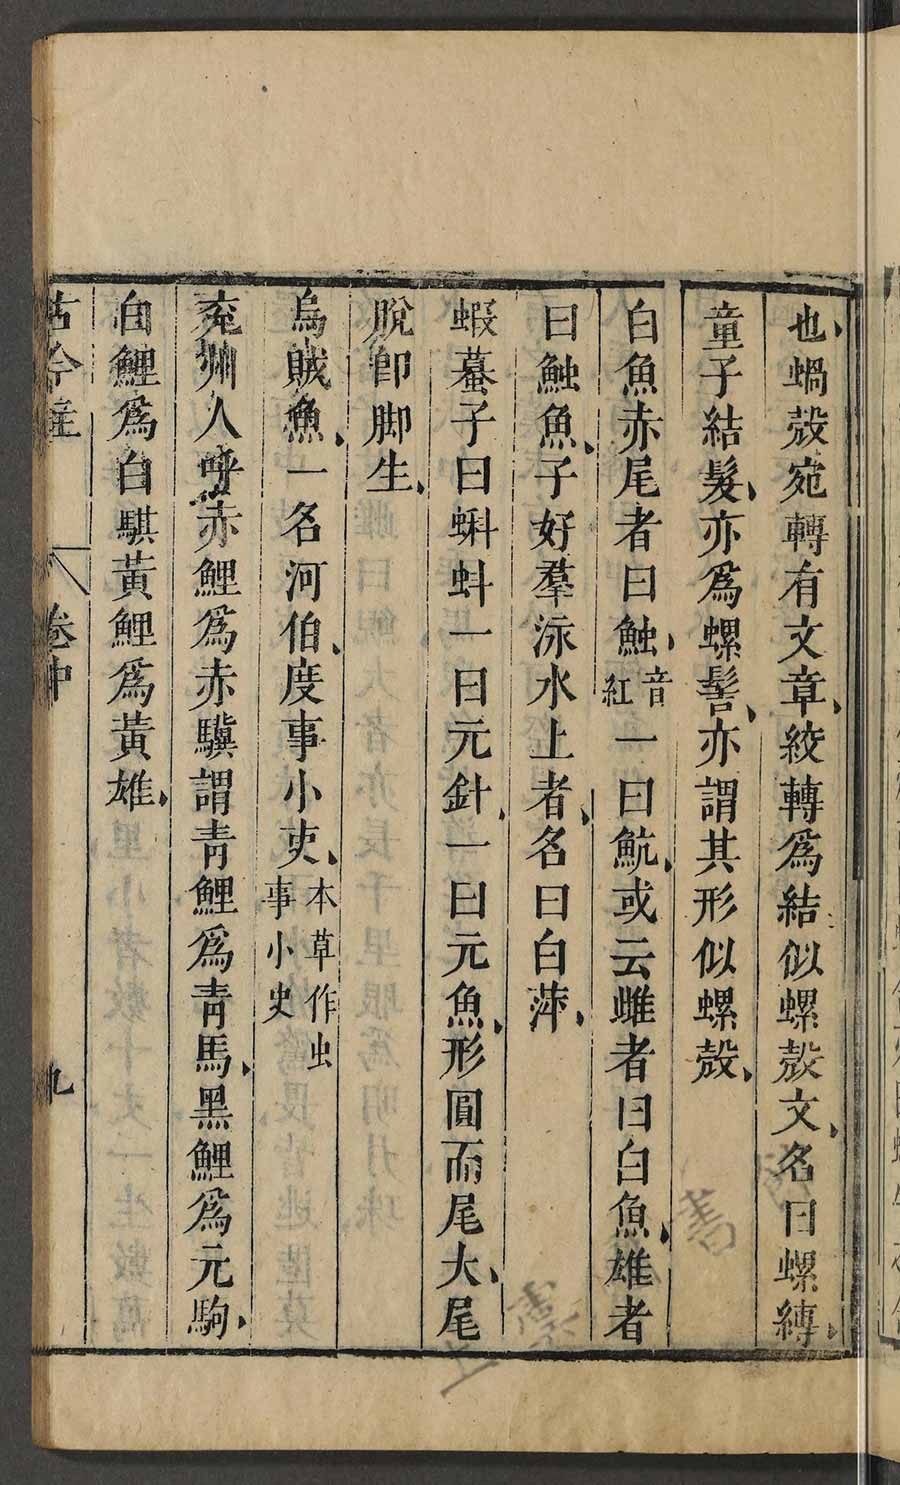 也蝸殼宛轉有文章絞轉爲結似螺殼文名曰螺縛
童子結髮亦爲螺髻亦謂其形似螺殼
白魚赤尾者曰䱌音紅一曰魧或云雌者曰白魚雄者
曰䱌魚子好羣泳水上者名曰白萍
蝦蟇子曰蝌蚪一曰元針一曰元魚形圓而尾大尾
脫卽脚生
烏賊魚一名河伯度事小吏本草作虫事小史
兖州人呼赤鯉爲赤驥謂靑鯉爲靑馬黑鯉爲元駒
白鯉爲白騏黃鯉爲黃雄
古今注
卷中
九